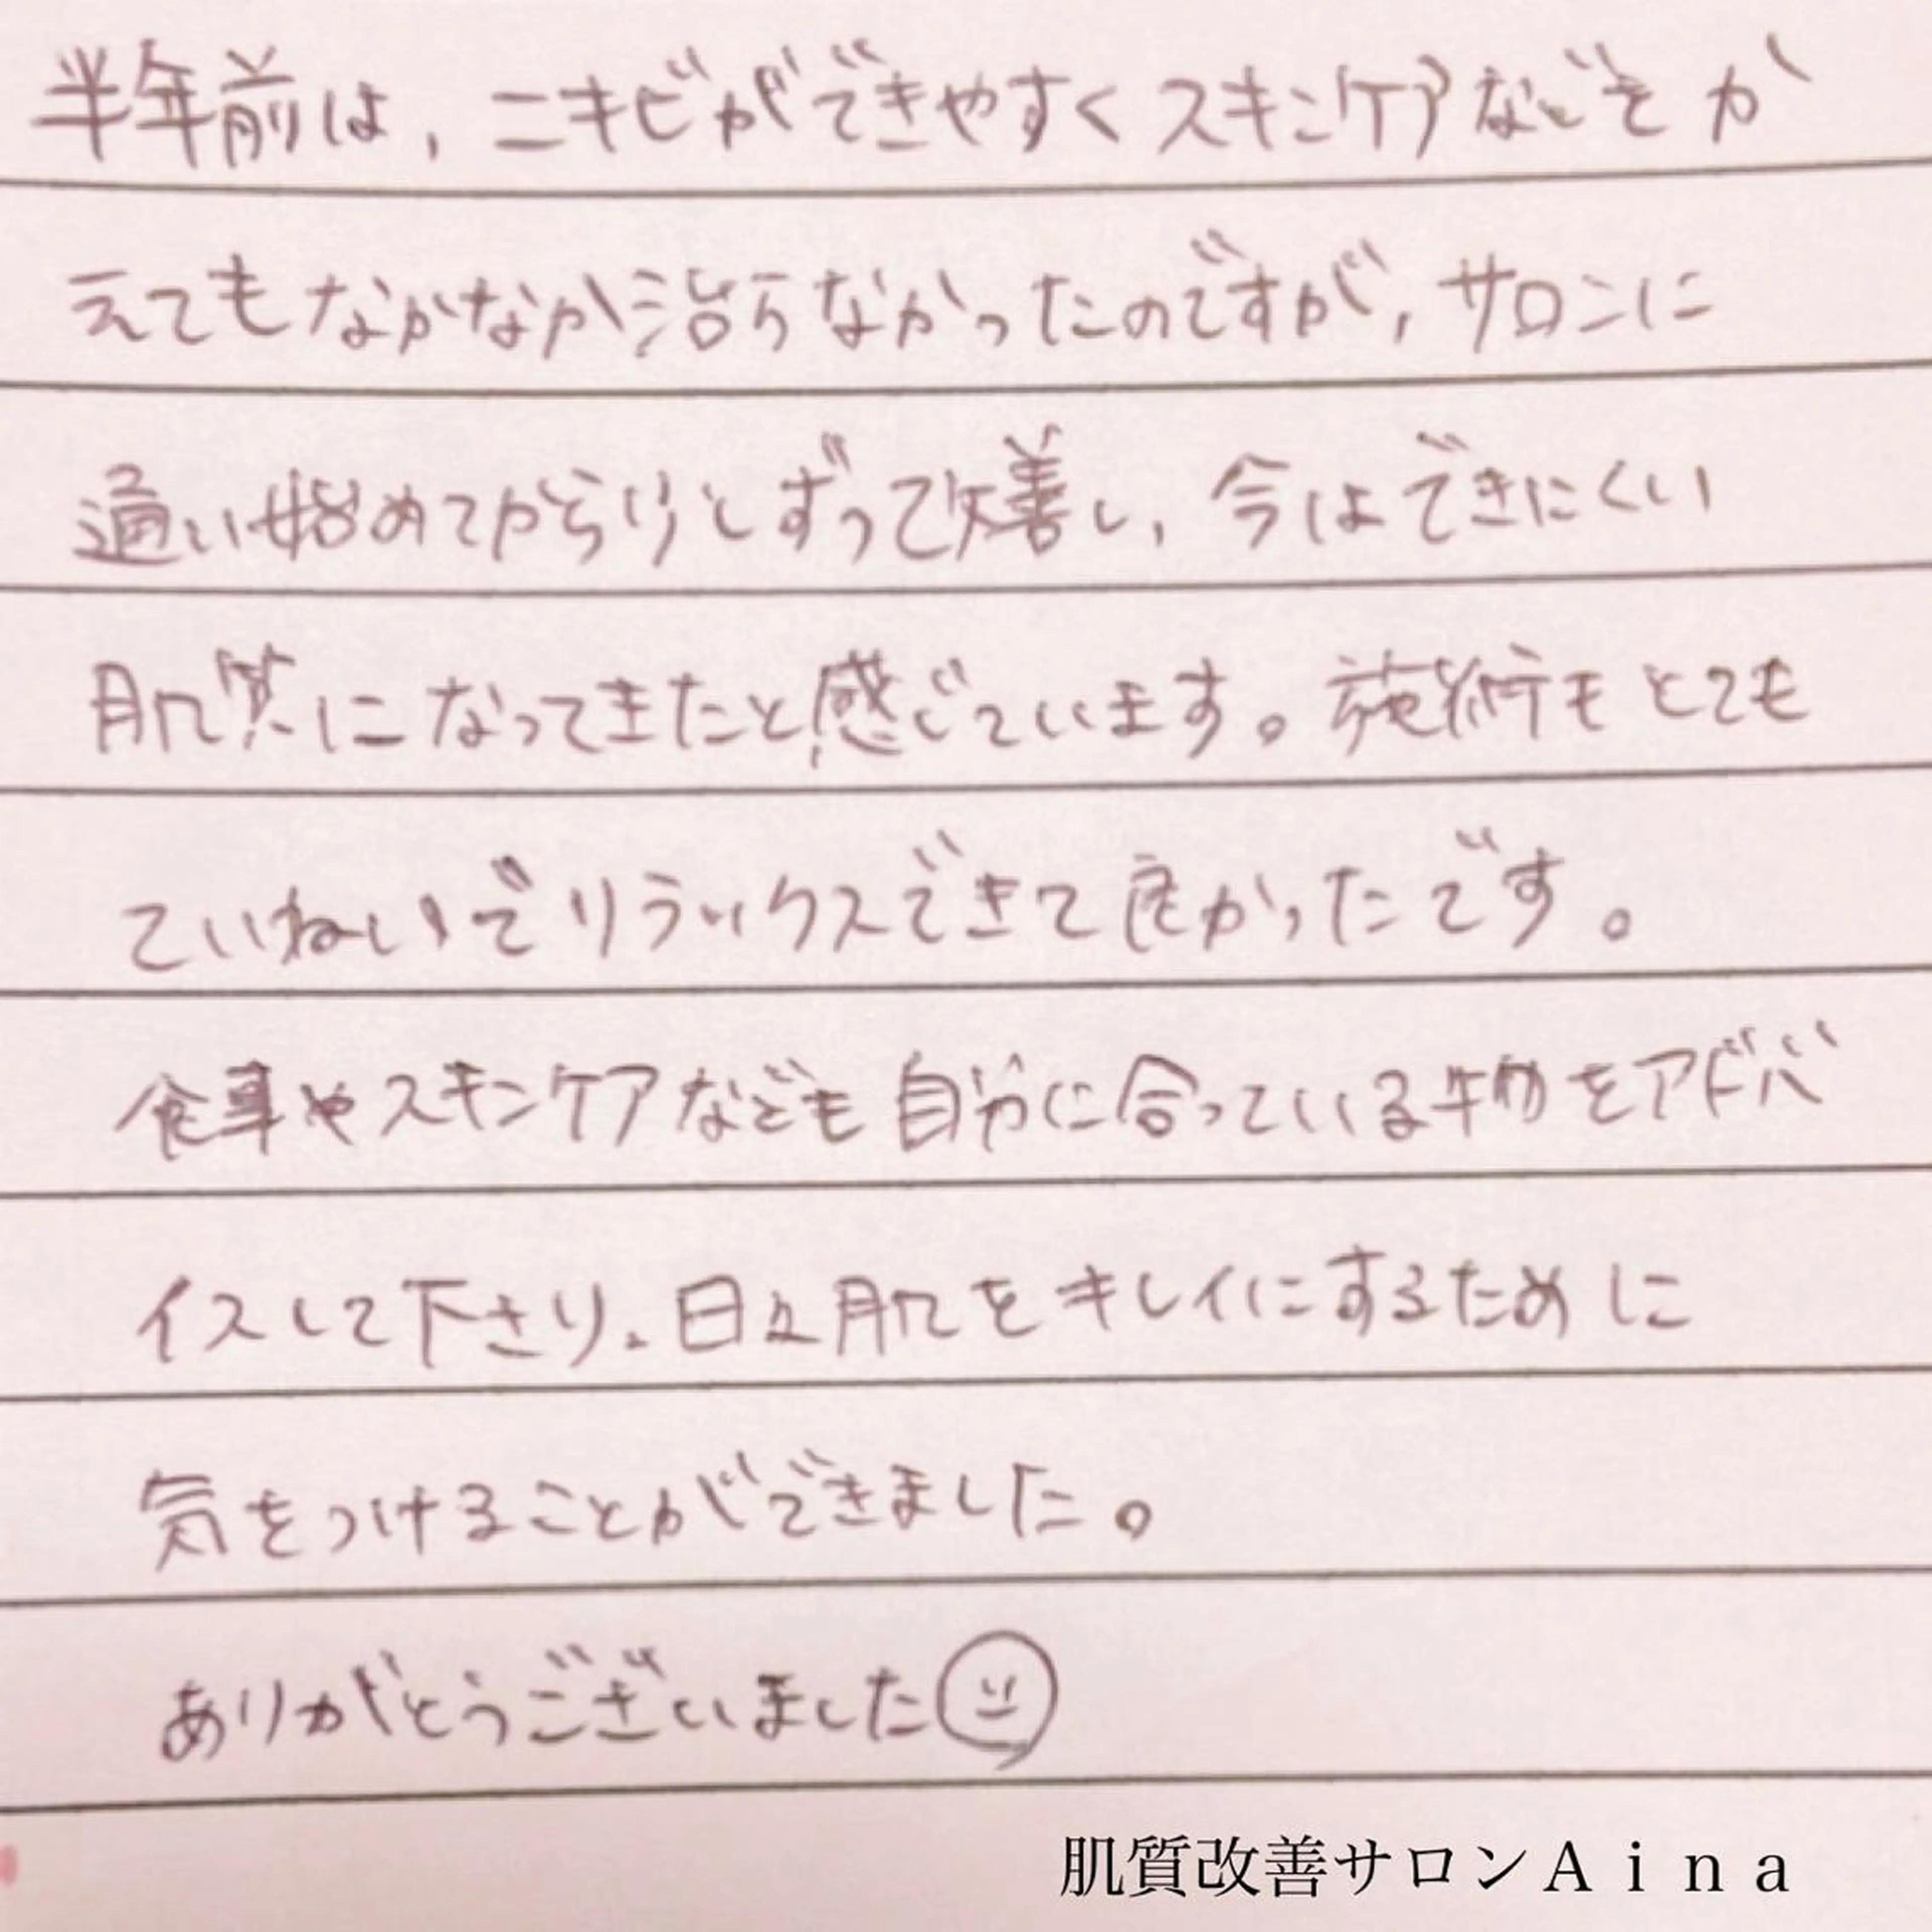 半年前は、ニキビができやすくスキンケアなどをか
えてもなかなか治らなかったのですが、サロンに
通い始めてから少しずつ改善し、今はできにくい
肌質になってきたと感じています。施術もとても
ていねいでリラックスできて良かったです。
食事やスキンケアなども自分に合っている物をアドバ
イスして下さり、日々肌をキレイにするために
気をつけることができました。
ありがとうございました
肌質改善サロンAina